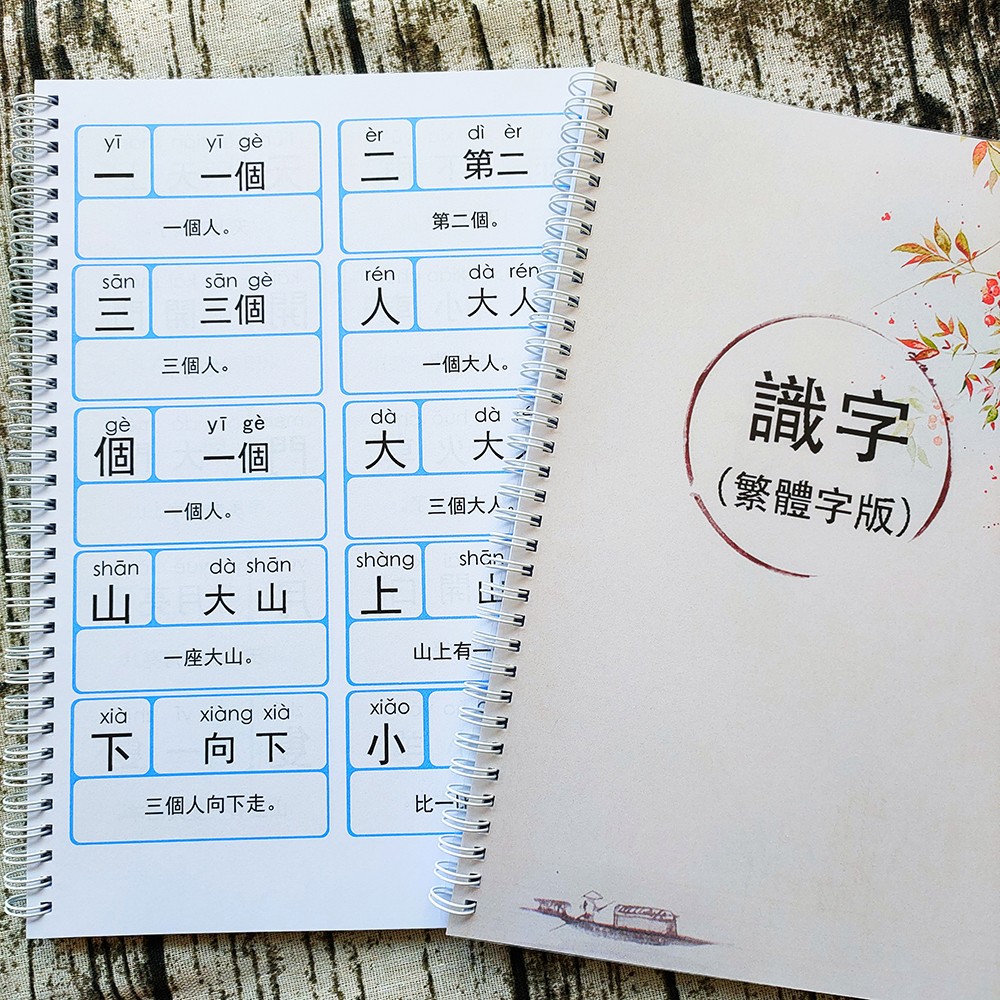 yī yī gè
一 一個
一個人。
èr dì èr
二 第二
第二個。
sān sān gè
三 三個
三個人。
rén dà rén
人 大人
一個大人。
gè yī gè
個 一個
一個人。
dà dà
大 大
三個大人。
shān dà shān
山 大山
一座大山。
shàng shān
上 山
山上有一
xià xiàng xià
下 向下
三個人向下走。
xiǎo
小
比一
識字
(繁體字版)